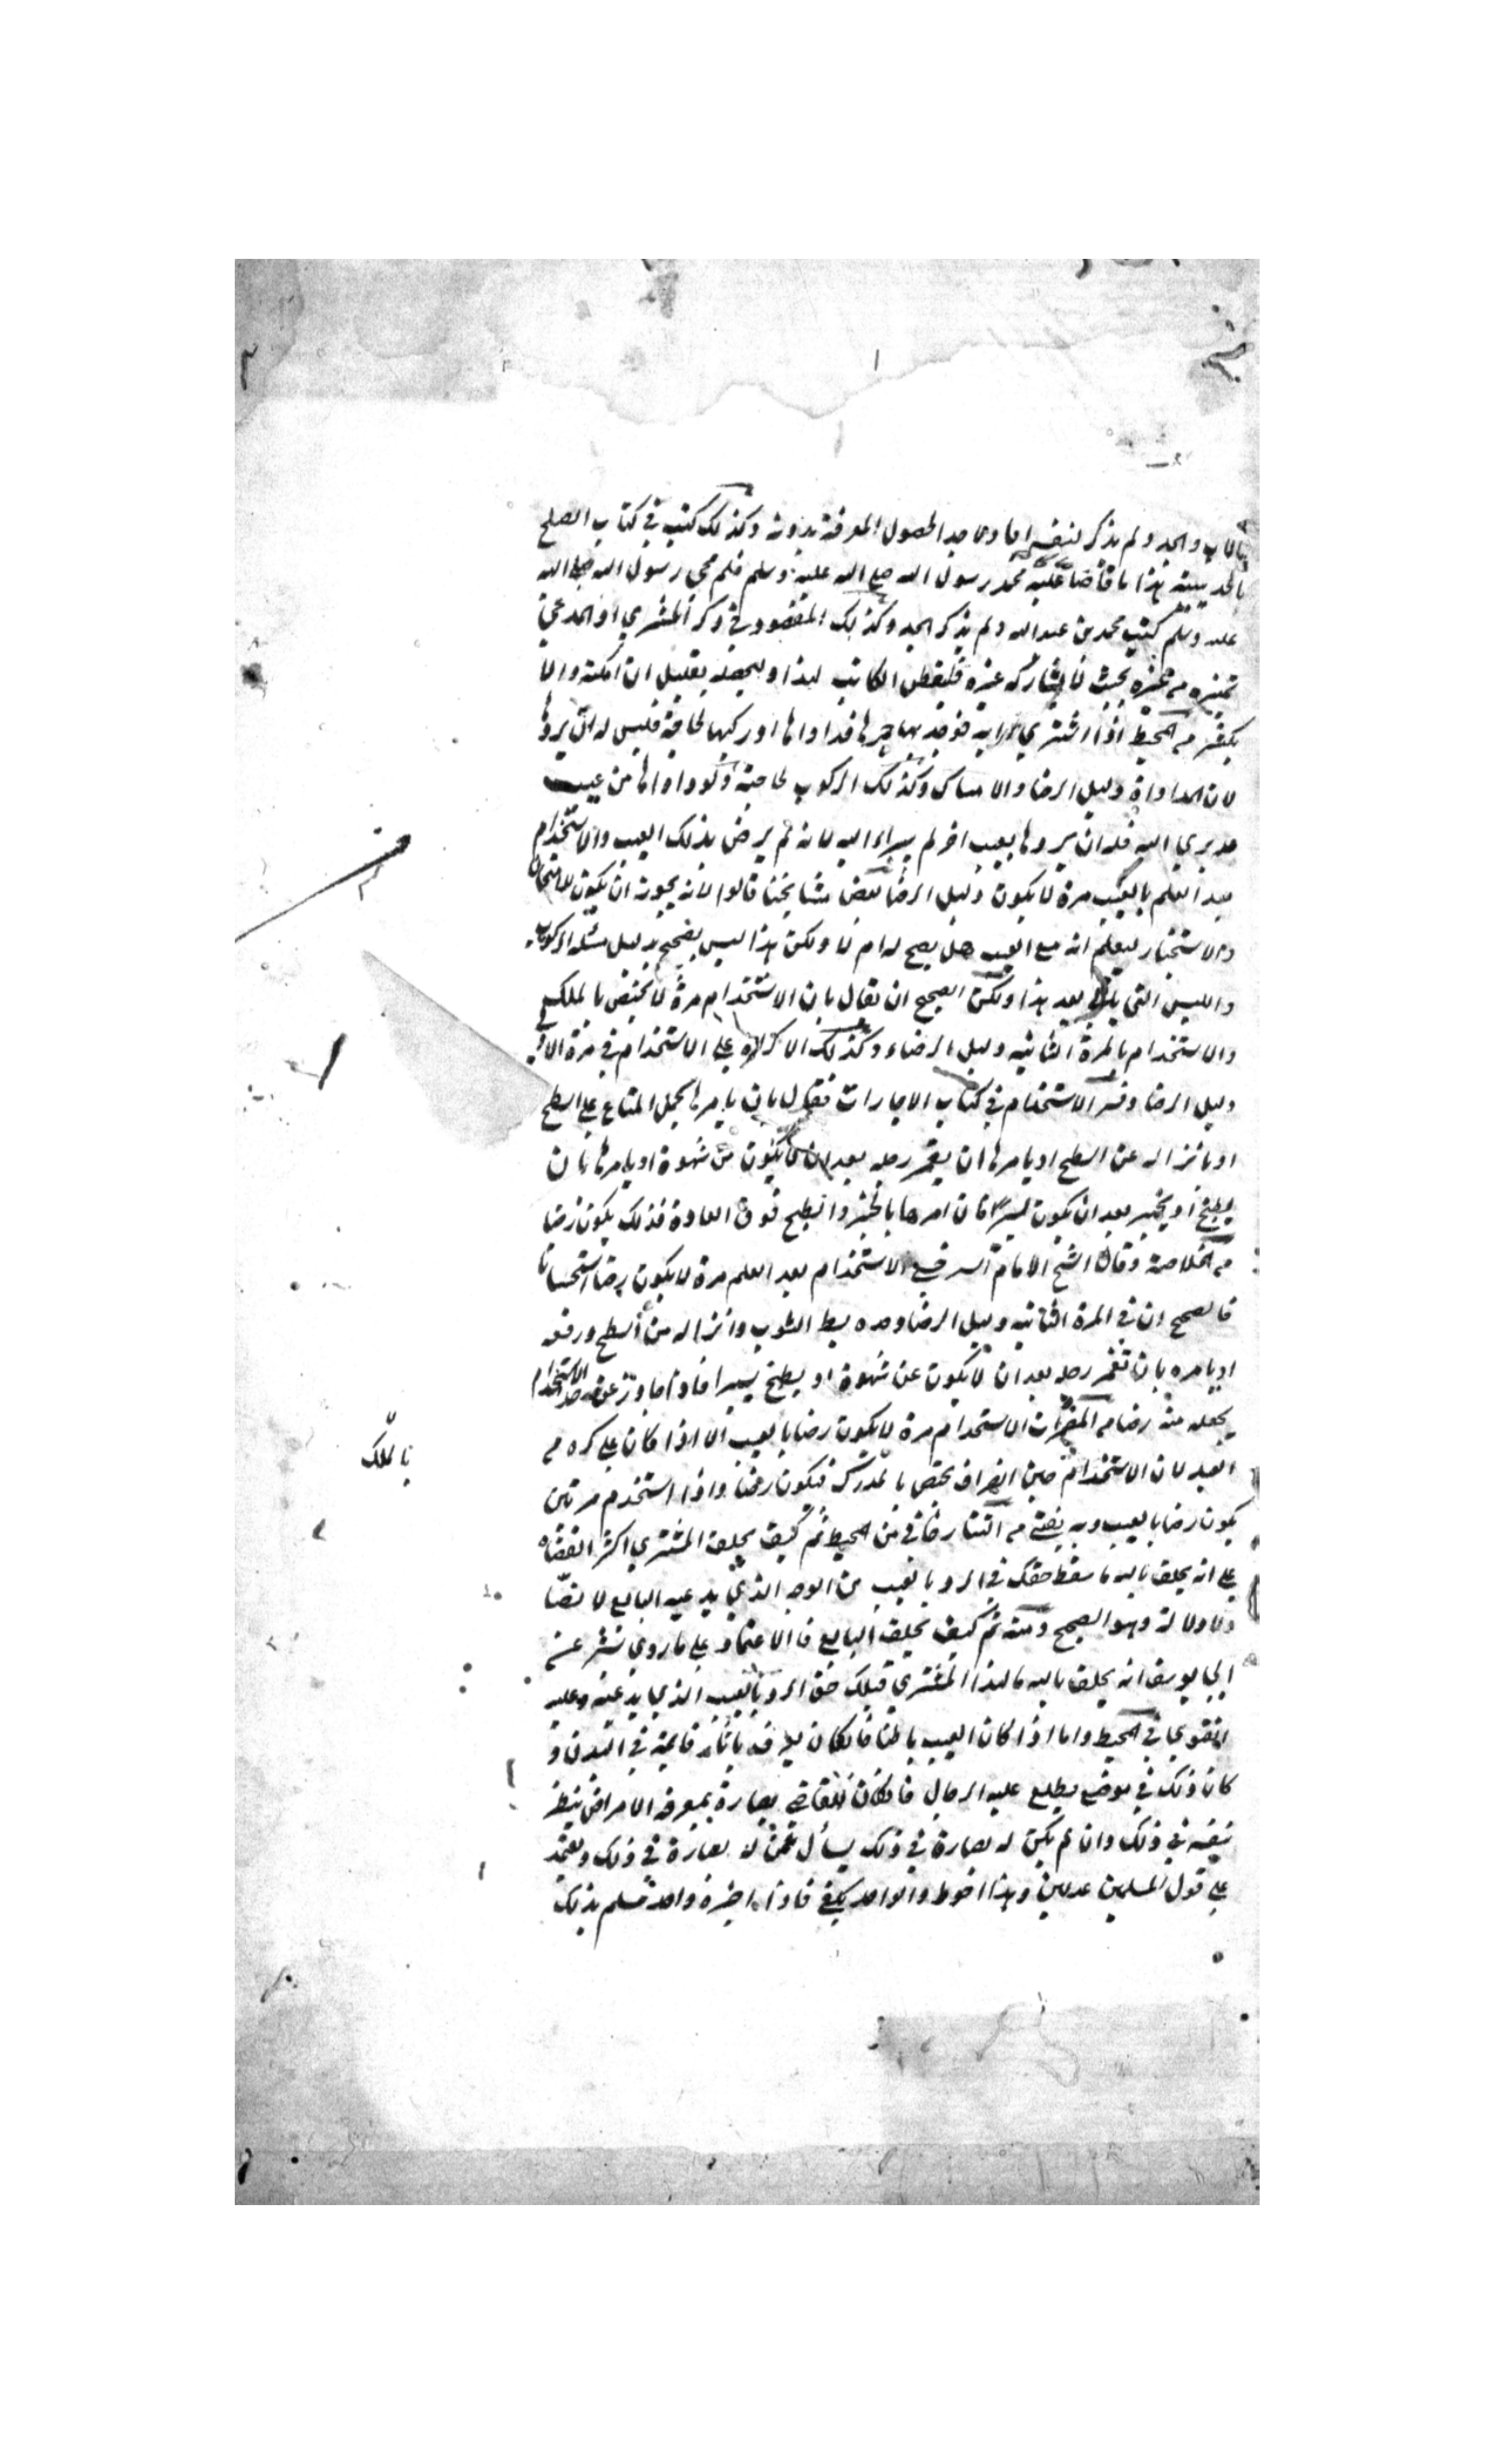 بالاب والجد ولم يذكر لنفسه ابا ولا جدا لحصول المعرفة بدونه وكذلك كتب في كتاب الصلح
بالحديبية هذا ما قاضا عليه محمد رسول الله صلى الله عليه وسلم فلم محي رسول الله صلى الله
عليه وسلم كتب محمد بن عبدالله ولم يذكر الجد وكذلك المقصود في ذكر المشتري او المدعي
تميزه من غيره بحيث لا يشاركه غيره فليفطن الكاتب لهذا وليحصله بقليل ان امكنه والا
بكثير من المحيط اذا اشترى دابة فوجد بها جرحا فداواها او ركبها لحاجة فليس له ان يردها
لان المداواة دليل الرضا والامساك وكذلك الركوب لحاجته ولو داواها من عيب
قد بري اليه فله ان يردها بعيب اخر لم يبراء اليه لانه لم يرض بذلك العيب والاستخدام
بعد العلم بالعيب مرة لا يكون دليل الرضا بعض مشايخنا قالوا لانه يجوز ان يكون للامتحان
والاستخبار ليعلم انه مع العيب هل يصح له ام لا ولكن هذا ليس بصحيح بدليل مسئلة الركوب
واللبس التي بعد هذا ولكن الصحيح ان يقال بان الاستخدام مرة لا يختص بالملك في
والاستخدام بالمرة الثانية دليل الرضاء وكذلك الاكراه على الاستخدام في مرة الاولى
دليل الرضا وفسر الاستخدام في كتاب الاجارات فقال بان يامرها بحمل المتاع على السطح
او بانزاله عن السطح او يامرها ان يغمز رجله بعد ان لا يكون من شهوة او يامرها بان
يطبخ او يخبز بعد ان يكون يسيرا فان امرها بالخبز والطبخ فوق العادة فذلك يكون رضا
من الخلاصة وقال الشيخ الامام السرخسي الاستخدام بعد العلم مرة لا يكون رضا استحسانا
فالصحيح ان في المرة الثانية دليل الرضا وحده بسط الثوب وانزاله من السطح ورفعه
او يامره بان تغمز رجله بعد ان لا يكون عن شهوة او يطبخ يسيرا فاذا جاوز عن حد الاستخدام
يجعله منه رضا من المضمرات الاستخدام مرة لا يكون رضا بالعيب الا اذا كان على كره من
العبد لان الاستخدام يختص بالملك فيكون رضا واذا استخدم مرتين
يكون رضا بالعيب وبه يفتى من التتارخاني من المحيط ثم كيف يحلف المشتري اكثر القضاة
على انه يحلف بالله ما سقط حقك في الرد بالعيب من الوجه الذي يدعيه البايع لا نصا
ولا دلالة وهو الصحيح ومنه ثم كيف يحلف البايع فالاعتماد على ما روي بشر عن
ابي يوسف انه يحلف بالله ما لهذا المشتري قبلك حق الرد بالعيب الذي يدعيه وعليه
الفتوى في المحيط واما اذا كان العيب باطنا فان كان يعرف باثار قايمة في البدن و
كان ذلك في موضع يطلع عليه الرجال فان كان للقاضي بصارة بمعرفة الامراض ينظر
بنفسه في ذلك وان لم يكن له بصارة في ذلك يسأل عمن له بصارة في ذلك ويعتمد
على قول المسلمين عدلين وهذا احوط والواحد يكفي فاذا اخبره واحد مسلم بذلك
بالملك